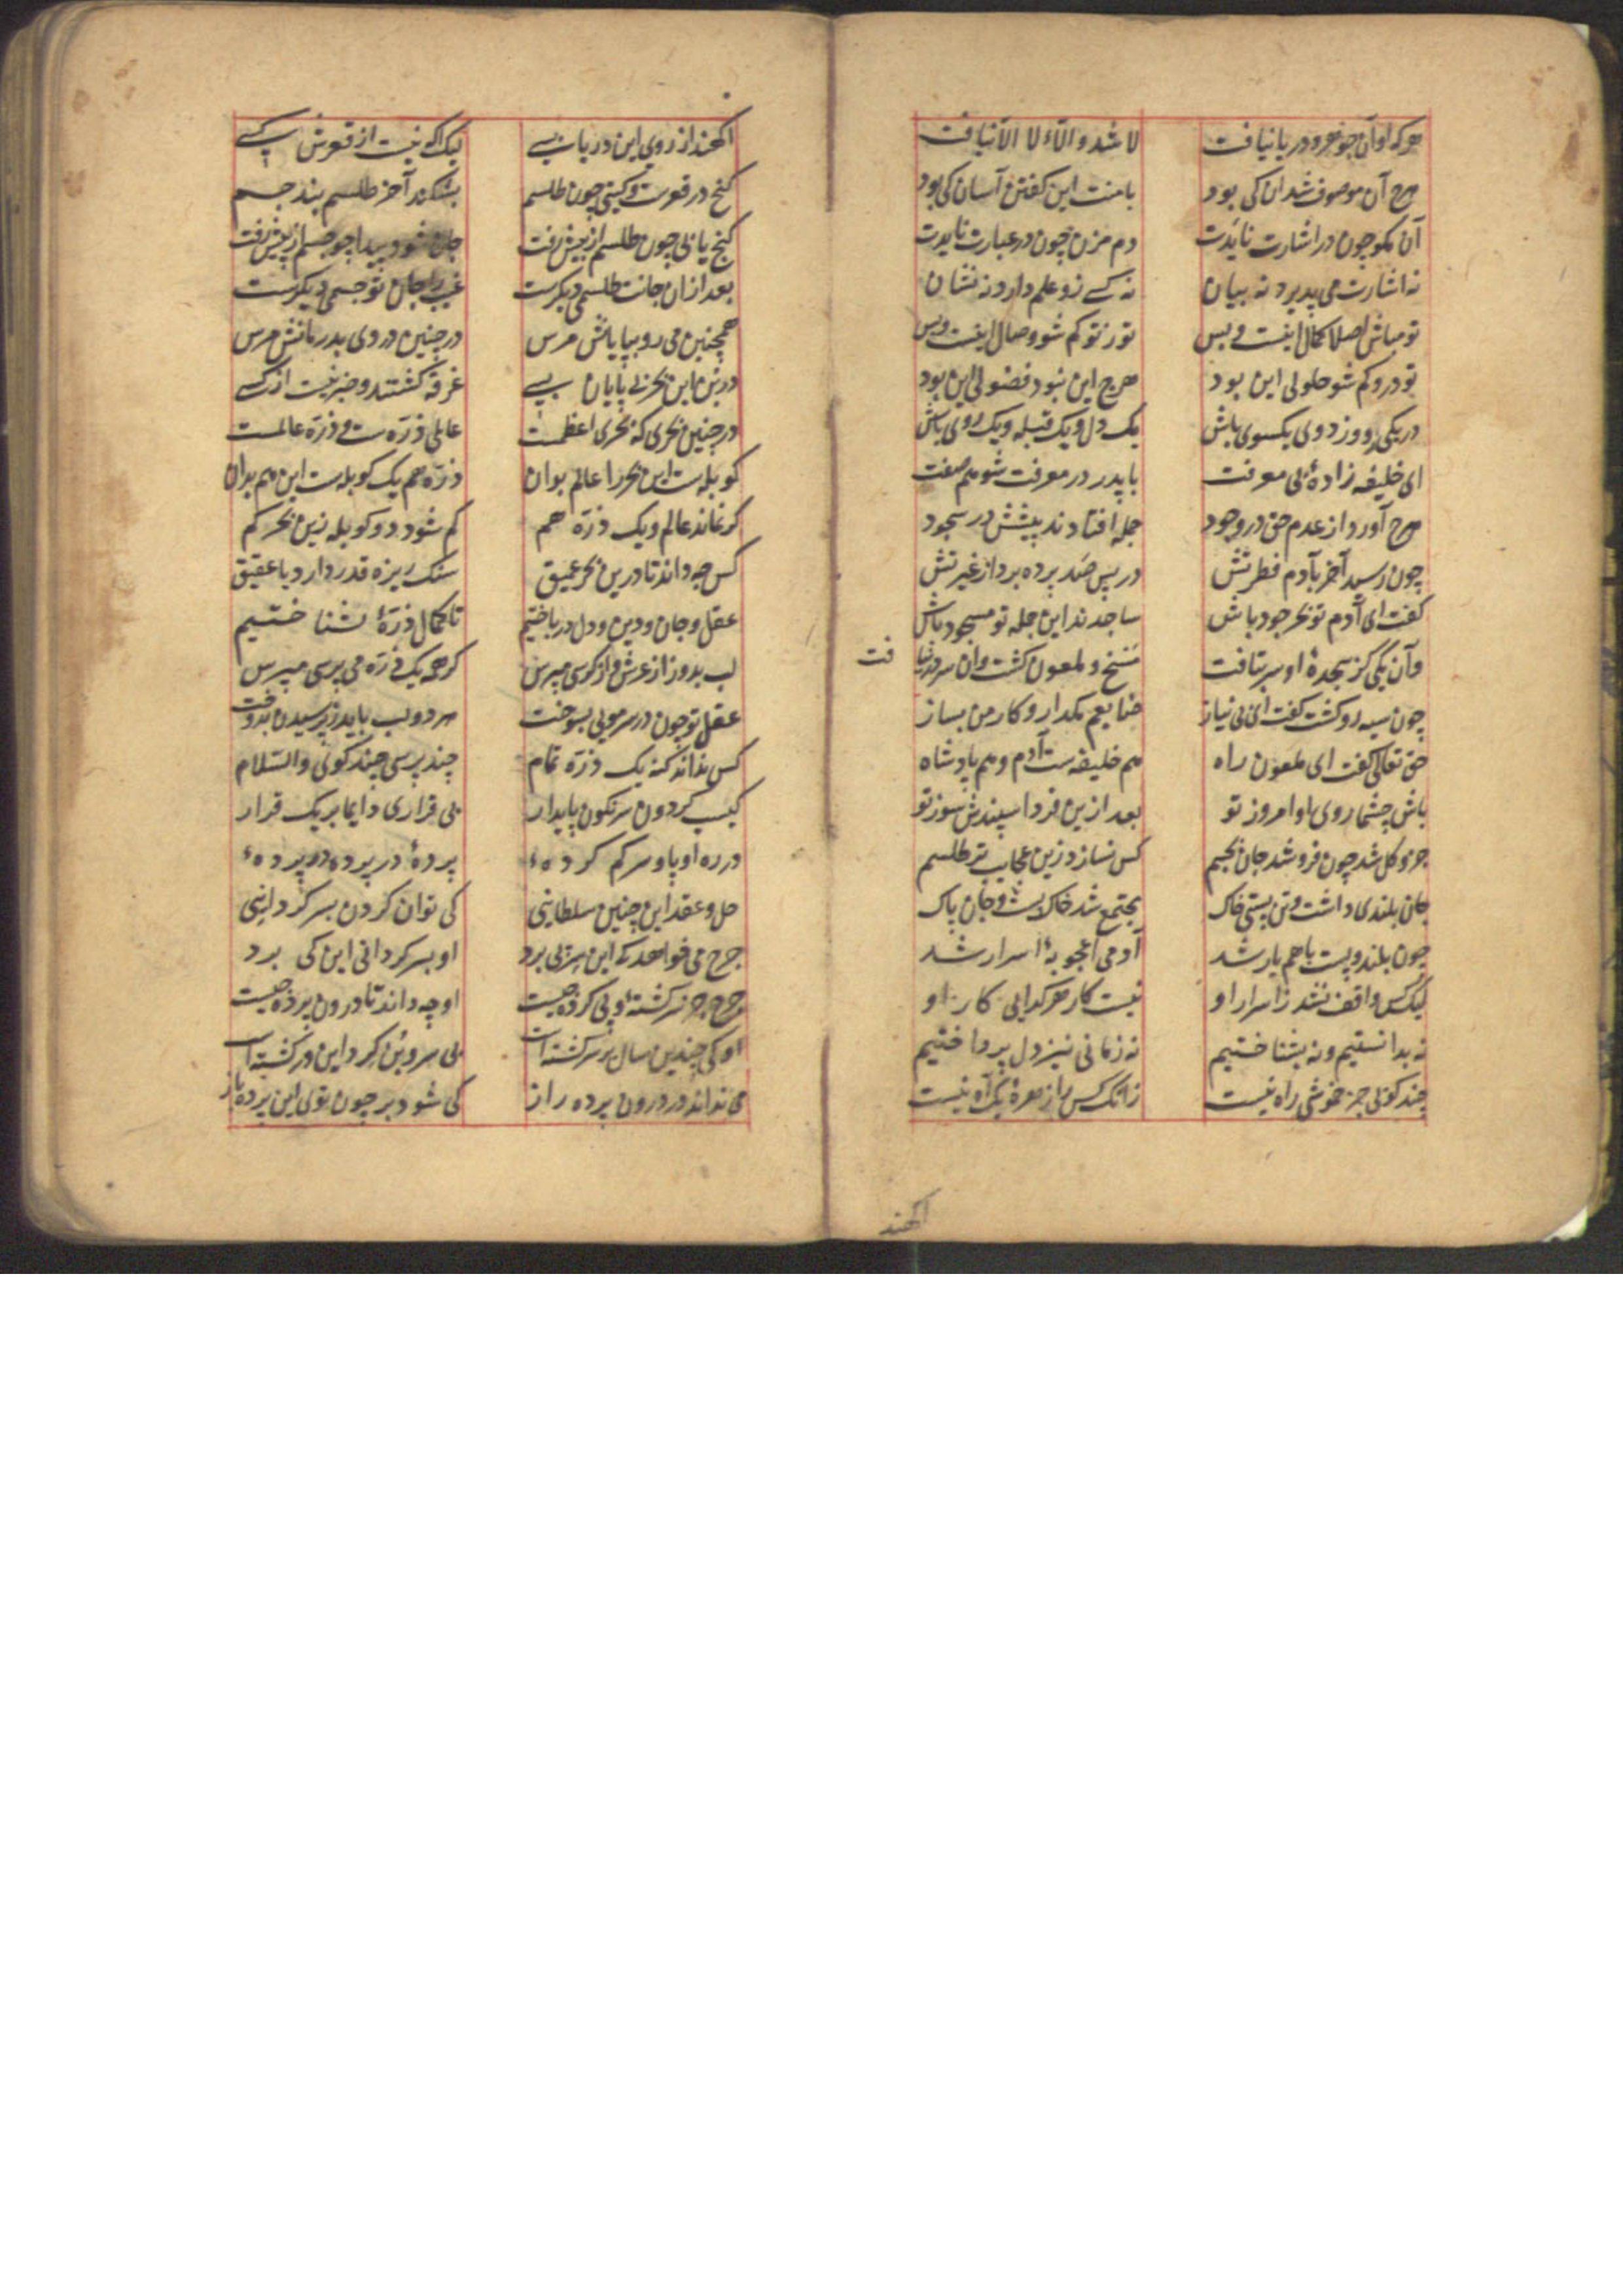 هرکه او آن جوهر و دریا نیافت لا شد و از لا و الا لا نیافت
هرچ آن موصوف شد آن کی بود با منت این گفتن آسان کی بود
آن مگو چون در اشارت نایدت دم مزن چون در عبارت نایدت
نه اشارت می پذیرد نه بیان نه کسے زو علم دارد نه نشان
تو مباش اصلا کمال اینست و بس تو ز تو گم شو وصال اینست و بس
تو درو گم شو حلولی این بود هرچ این نبود فضولی این بود
در یکی رو وز دوی یکسوی باش یک دل و یک قبله و یک روی باش
ای خلیفه زادهٔ بی معرفت با پدر در معرفت شو هم صفت
هرچ آورد از عدم حق در وجود جمله افتادند پیشش در سجود
چون رسید آخر بآدم فطرتش در پس صد پرده برد از غیرتش
گفت ای آدم تو بحر جود باش ساجدند این جمله تو مسجود باش
وآن یکی کز سجدهٔ او سر بتافت مسخ و ملعون گشت وآن سر درنیا
فت
چون سیه رو گشت گفت ای بی نیاز ضایعم مگذار و کار من بساز
حق تعالی گفت ای ملعون راه هم خلیفه ست آدم و هم پادشاه
باش چشما روی او امروز تو بعد ازین فردا سپندش سوز تو
جزو کل شد چون فرو شد جان بجسم کس نسازد زین عجایب تر طلسم
جان بلندی داشت و تن پستی خاک مجتمع شد خاک پست و جان پاک
چون بلند و پست با هم یار شد آدمی اعجوبهٔ اسرار شد
لیک کس واقف نشد ز اسرار او نیست کار هر گدایی کار او
نه بدانستیم و نه بشناختیم نه زمانی نیز دل پرداختیم
چند گوئی جز خموشی راه نیست زانک کس را زهرهٔ یک آه نیست
اگهند
اگهند از روی این دریا بسے لیک آگه نیست از قعرش کسے
گنج در قعرست و گیتی چون طلسم بشکند آخر طلسم بند جسم
گنج یابی چون طلسم از پیش رفت جان شود پیدا چو جسم از پیش رفت
بعد از آن جانت طلسمی دیگرست غیب را جان تو جسمی دیگرست
همچنین می رو بپایانش مرس در چنین دردی بدرمانش مرس
در بن این بحر بی پایان بسے غرقه گشتند و خبر نیست از کسے
در چنین بحری که بحری اعظمست عالمی ذره ست و ذره عالمست
کوبله ست این بحر را عالم بدان ذره هم یک کوبله ست این هم بدان
گر نماند عالم و یک ذره هم کم شود دو کوبله زین بحر کم
کس چه داند تا درین بحر عمیق سنگ ریزه قدر دارد یا عقیق
عقل و جان و دین و دل درباختیم تا کمال ذرهٔ بشناختیم
لب بدوز از عرش و از کرسی مپرس گرچه یک ذره می پرسی مپرس
عقل تو چون در سر مویی بسوخت هر دو لب باید ز پرسیدن بدوخت
کس نداند کنه یک ذره تمام چند پرسی چند گوئی والسلام
کیست گردون سرنگون پایدار بی قراری دایما بر یک قرار
در ره او پا و سر گم کردهٔ پردهٔ در پرده در پردهٔ
حل و عقد این چنین سلطانیی کی توان کردن بسرگردانیی
چرخ می خواهد که این سر پی برد او بسرگردانی این کی برد
چرخ جز سرگشتهٔ پی کرده چیست او چه داند تا درون پرده چیست
او که چندین سال بر سر گشته است بی سر و بن گرد این در گشته است
می نداند در درون پرده راز کی شود بر چون توی این پرده باز